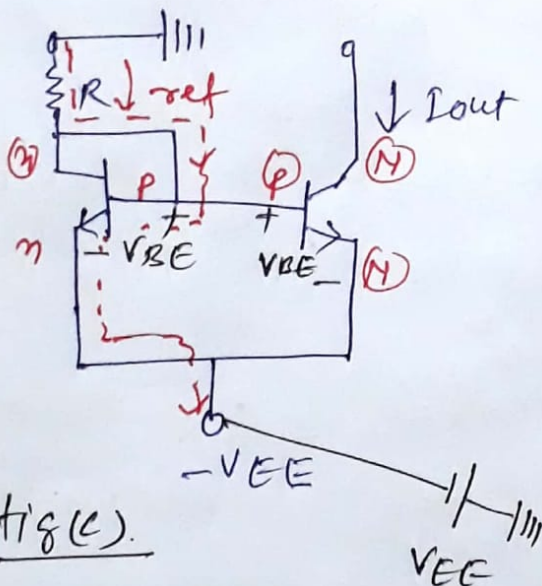 R ref
Iout
n P P N
n + VBE - + VBE - N
-VEE
fig(c).
VEE